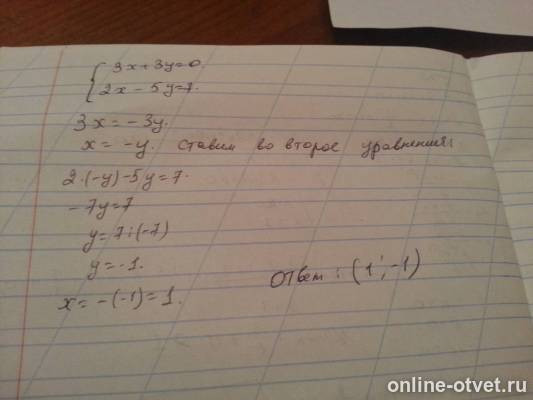 3x+3y=0
2x-5y=7.
3x=-3y.
x=-y. ставим во второе уравнение:
2·(-y)-5y=7.
-7y=7
y=7:(-7)
y=-1.
x=-(-1)=1.
Ответ: (1;-1)
online-otvet.ru